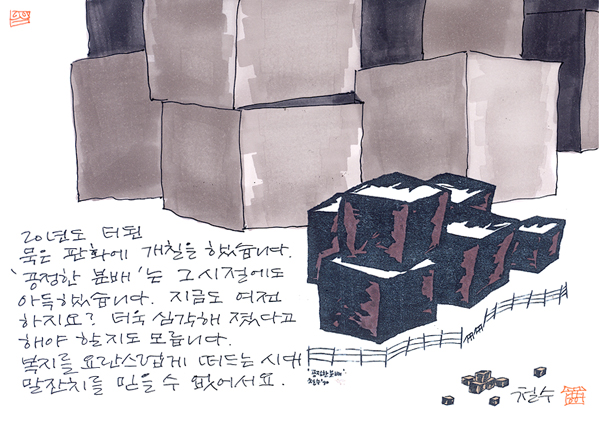 20년도 더 된
묵은 판화에 개칠을 했습니다.
'공정한 분배'는 그 시절에도
아득했습니다. 지금도 여전
하지요? 더욱 심각해 졌다고
해야 할지도 모릅니다.
복지를 요란스럽게 떠드는 시대
말잔치를 믿을 수 없어서요.
"공정한 분배"
철수